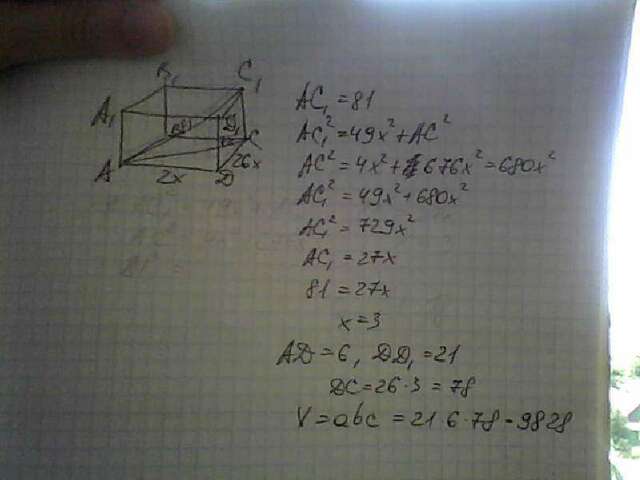 B₁ C₁
A₁ D₁
81 C
A 26x
2x D
AC₁ = 81
AC₁² = 49x² + AC²
AC² = 4x² + 676x² = 680x²
AC₁² = 49x² + 680x²
AC₁² = 729x²
AC₁ = 27x
81 = 27x
x = 3
AD = 6, DD₁ = 21
DC = 26·3 = 78
V = abc = 21 6·78 = 9828